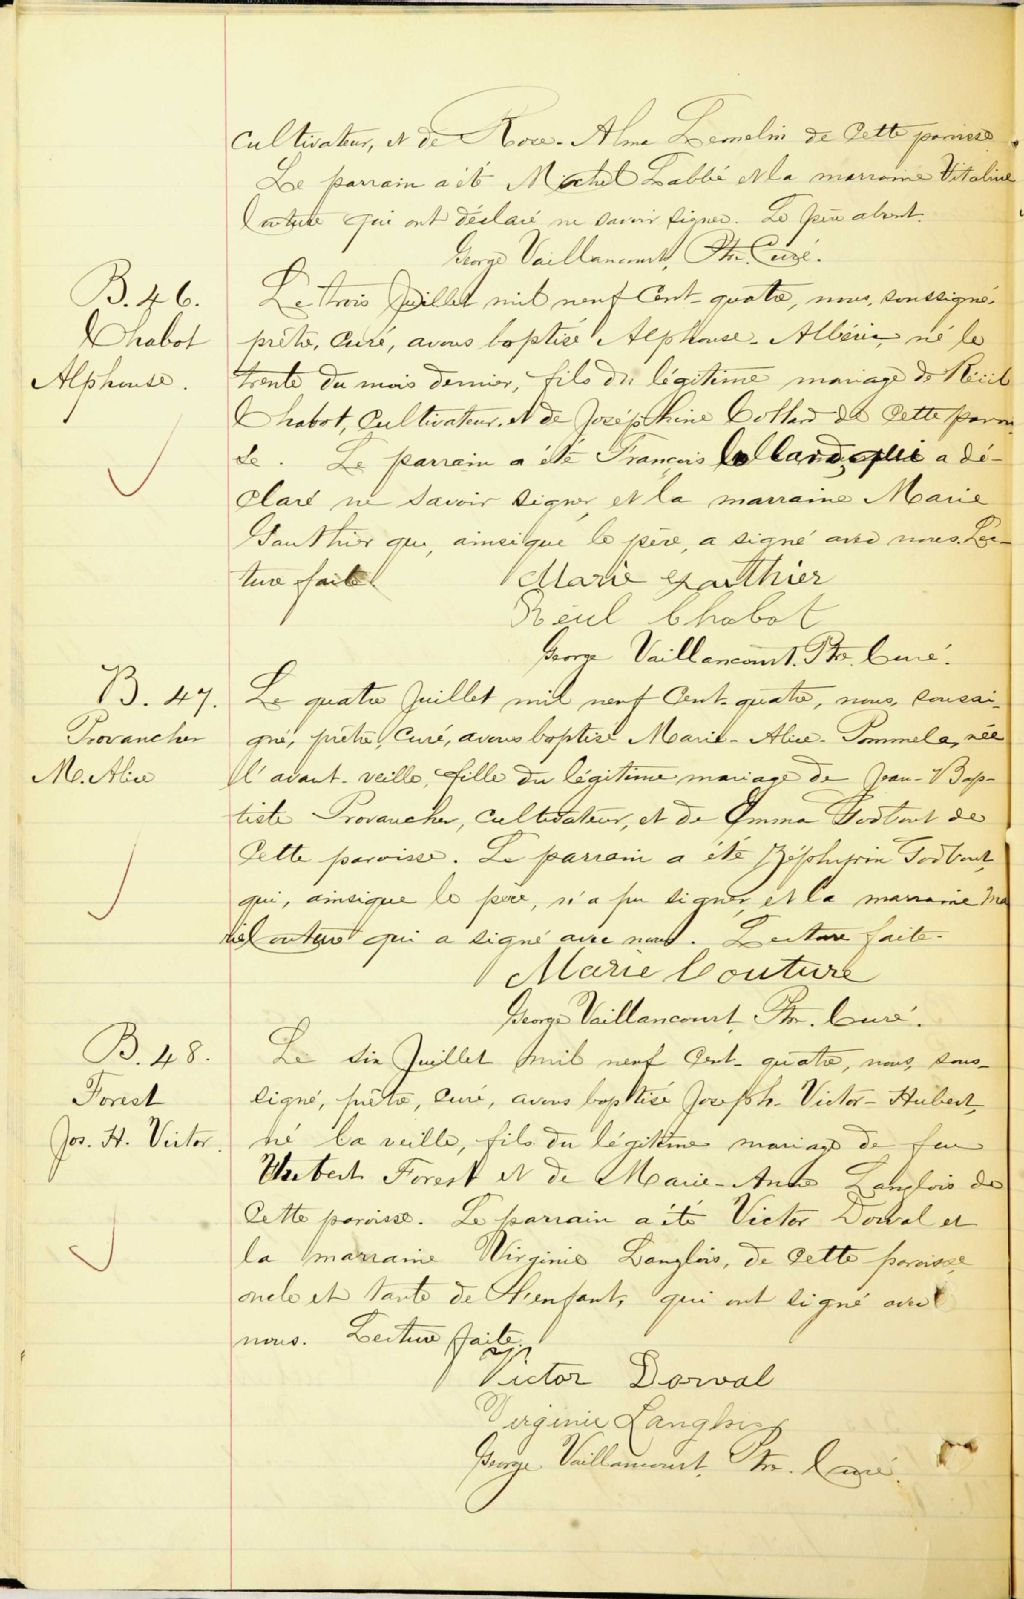 cultivateur, et de Rose-Alma Lemelin de cette paroisse
Le parrain a été Michel Labbé et la marraine Vitaline
Couture qui ont déclaré ne savoir signer. Le père absent.
George Vaillancourt, Ptr. Curé.
B. 46.
Chabot
Alphonse.
Le trois Juillet mil neuf cent-quatre, nous, soussigné,
prêtre, curé, avons baptisé Alphonse-Albéric, né le
trente du mois dernier, fils du légitime mariage de Réul
Chabot, cultivateur, et de Joséphine Collard de cette parois-
se. Le parrain a été François Collard, qui a dé-
claré ne savoir signer, et la marraine Marie
Gauthier qui, ainsi que le père, a signé avec nous. Lec-
ture faite.
Marie Gauthier
Réul Chabot
George Vaillancourt. Ptr. Curé.
B. 47.
Provancher
M. Alice
Le quatre Juillet mil neuf cent-quatre, nous, soussi-
gné, prêtre, curé, avons baptisé Marie-Alice-Pommela, née
l'avant-veille, fille du légitime mariage de Jean-Bap-
tiste Provancher, cultivateur, et de Emma Godbout de
cette paroisse. Le parrain a été Zéphyrin Godbout,
qui, ainsi que le père, n'a pu signer, et la marraine Ma
rie Couture qui a signé avec nous. Lecture faite.
Marie Couture
George Vaillancourt, Ptr. Curé.
B. 48.
Forest
Jos. H. Victor.
Le six Juillet mil neuf cent-quatre, nous, sous-
signé, prêtre, curé, avons baptisé Joseph-Victor-Hubert,
né la veille, fils du légitime mariage de feu
Hubert Forest et de Marie-Anne Langlois de
cette paroisse. Le parrain a été Victor Dorval et
la marraine Virginie Langlois, de cette paroisse,
oncle et tante de l'enfant, qui ont signé avec
nous. Lecture faite.
Victor Dorval
Virginie Langlois
George Vaillancourt, Ptr. Curé.